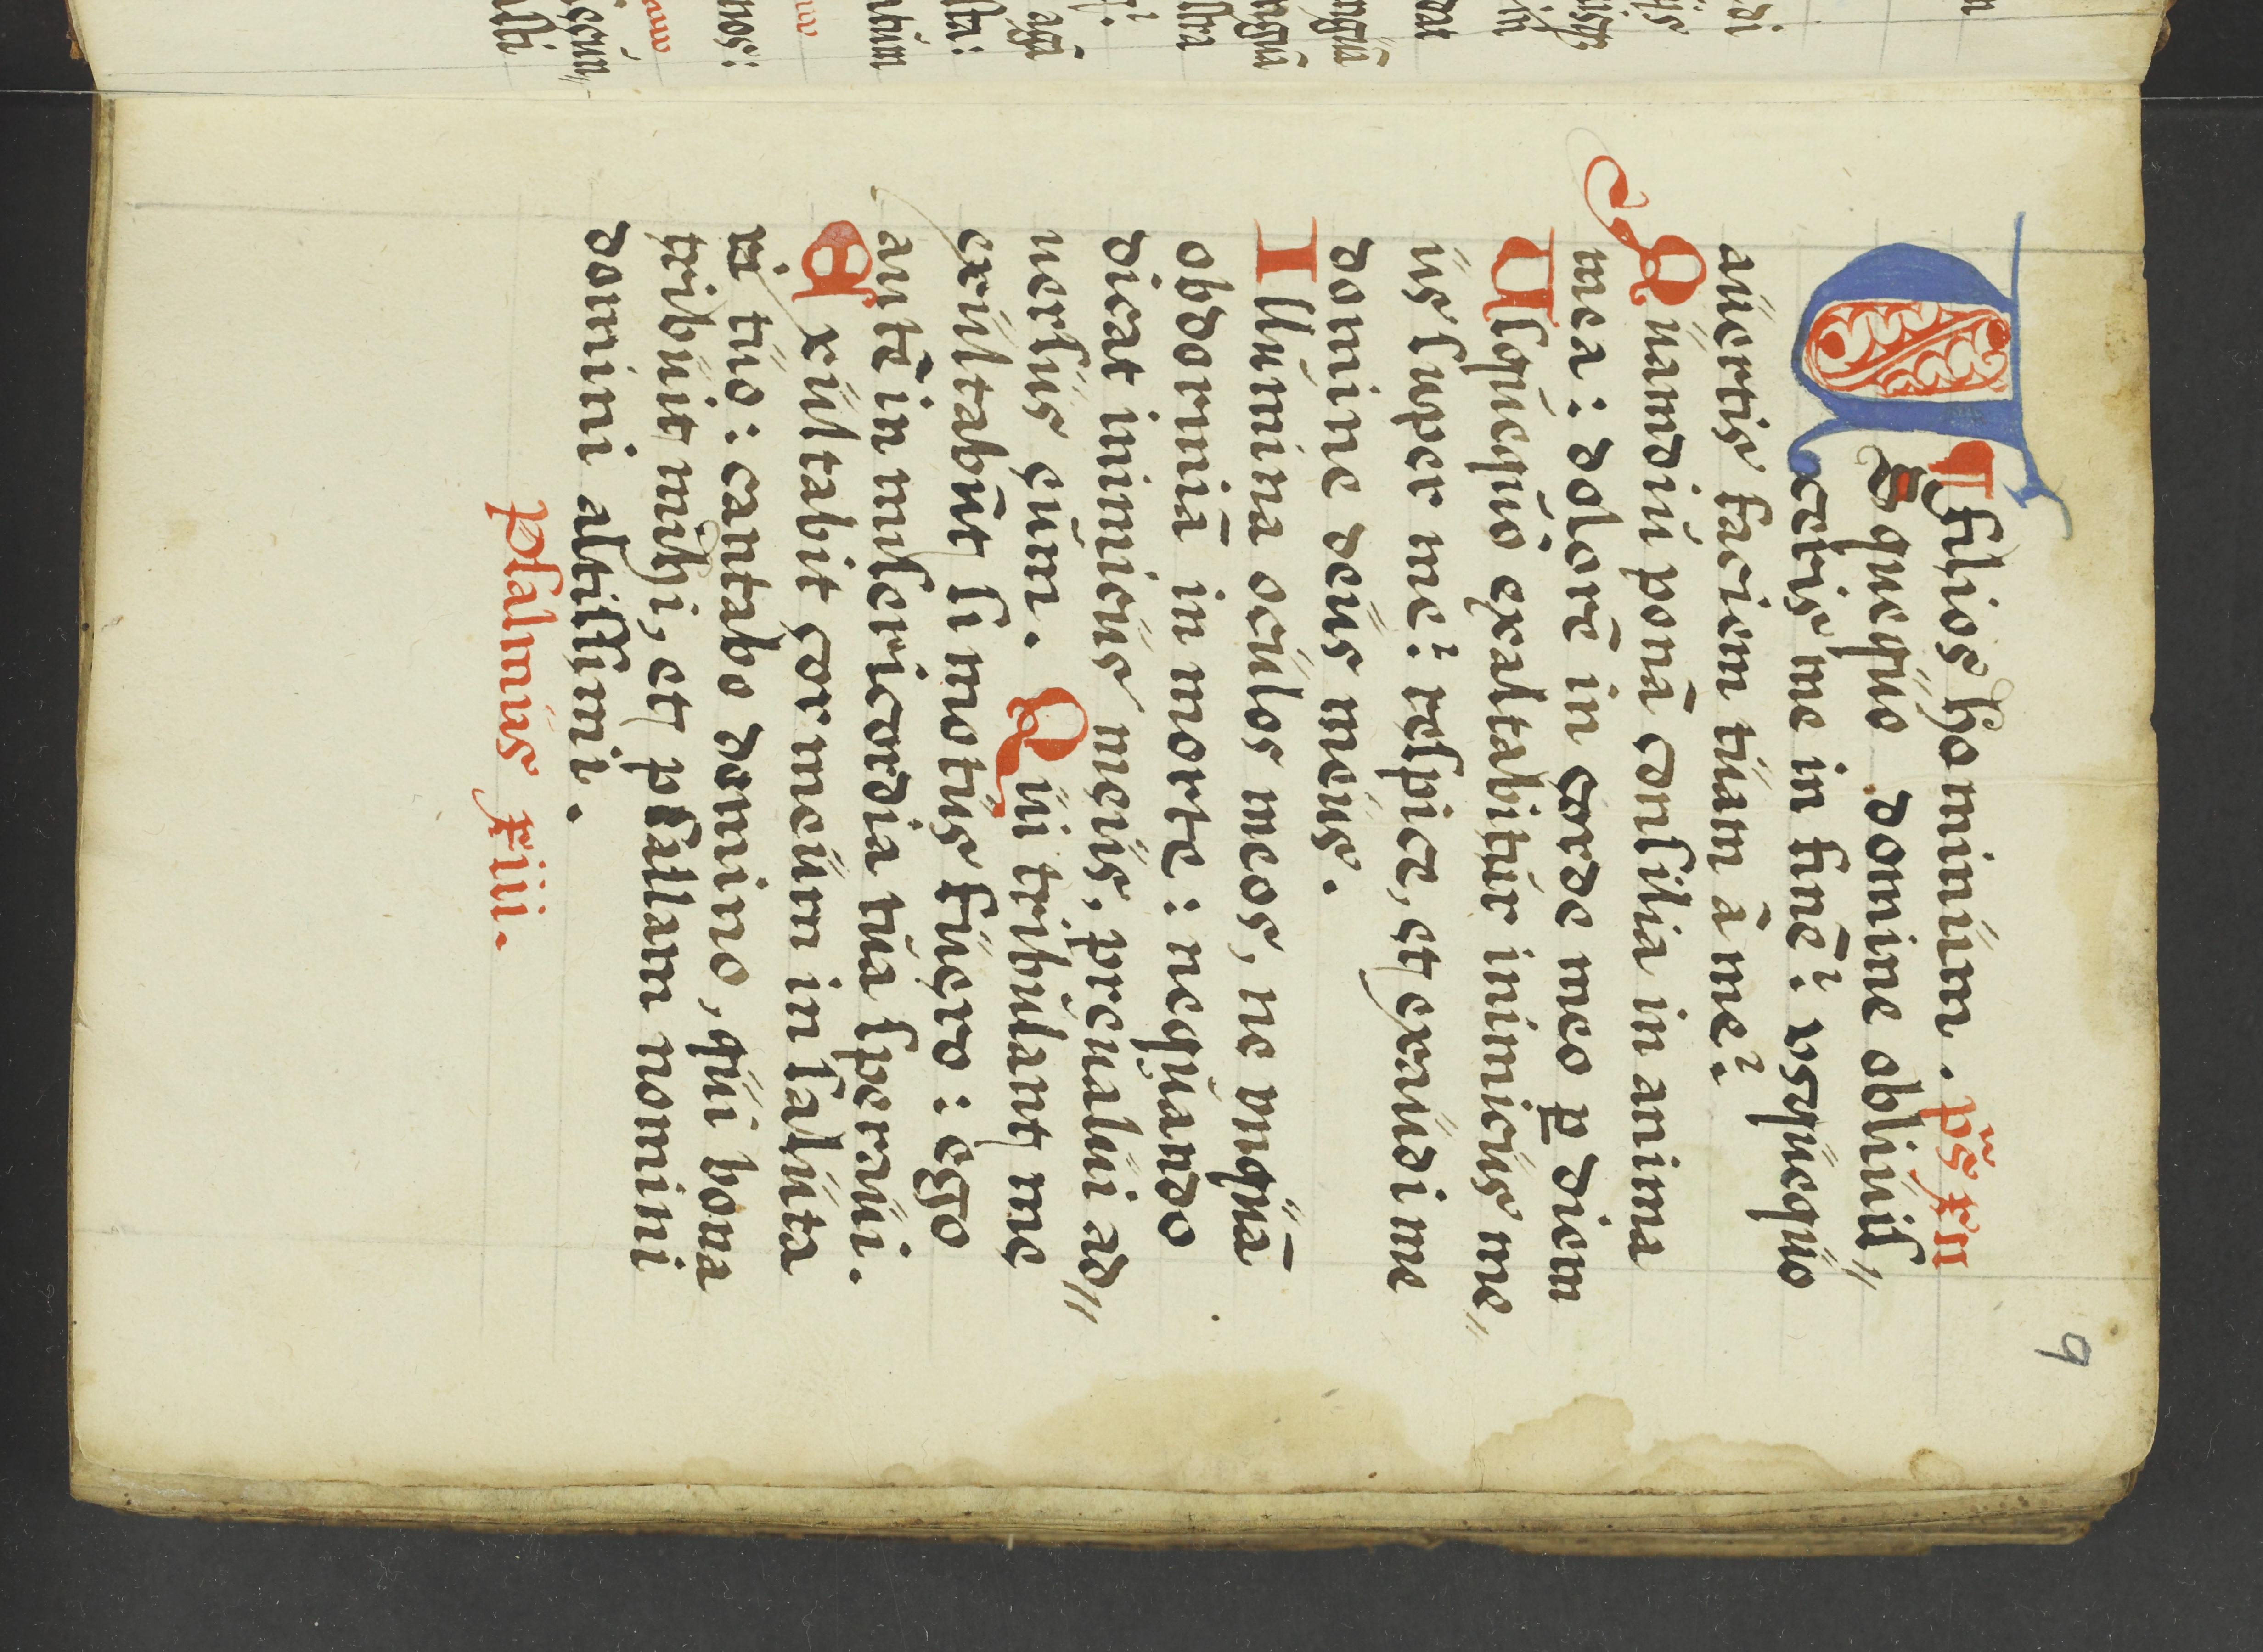 9
filios hominum. ps xii
USquequo domine obliuiſ〃
ceris me in finē? vsquequo
auertis faciem tuam à me?
Quamdiu ponā conſilia in anima
mea: dolorē in corde meo ꝑ diem
Uſquequo exaltabitur inimicus me〃
us ſuper me? reſpice, et exaudi me
domine deus meus.
Illumina oculos meos, ne unquā
obdormiā in morte: nequando
dicat inimicus meus, preualui ad〃
uerſus eum. Qui tribulant me
exultabūt ſi motus fuero: ego
autē in miſericordia tua ſperaui.
Exultabit cor meum in ſaluta
ri tuo: cantabo domino, qui bona
tribuit mihi, et pſallam nomini
domini altiſſimi.
Pſalmus xiii.